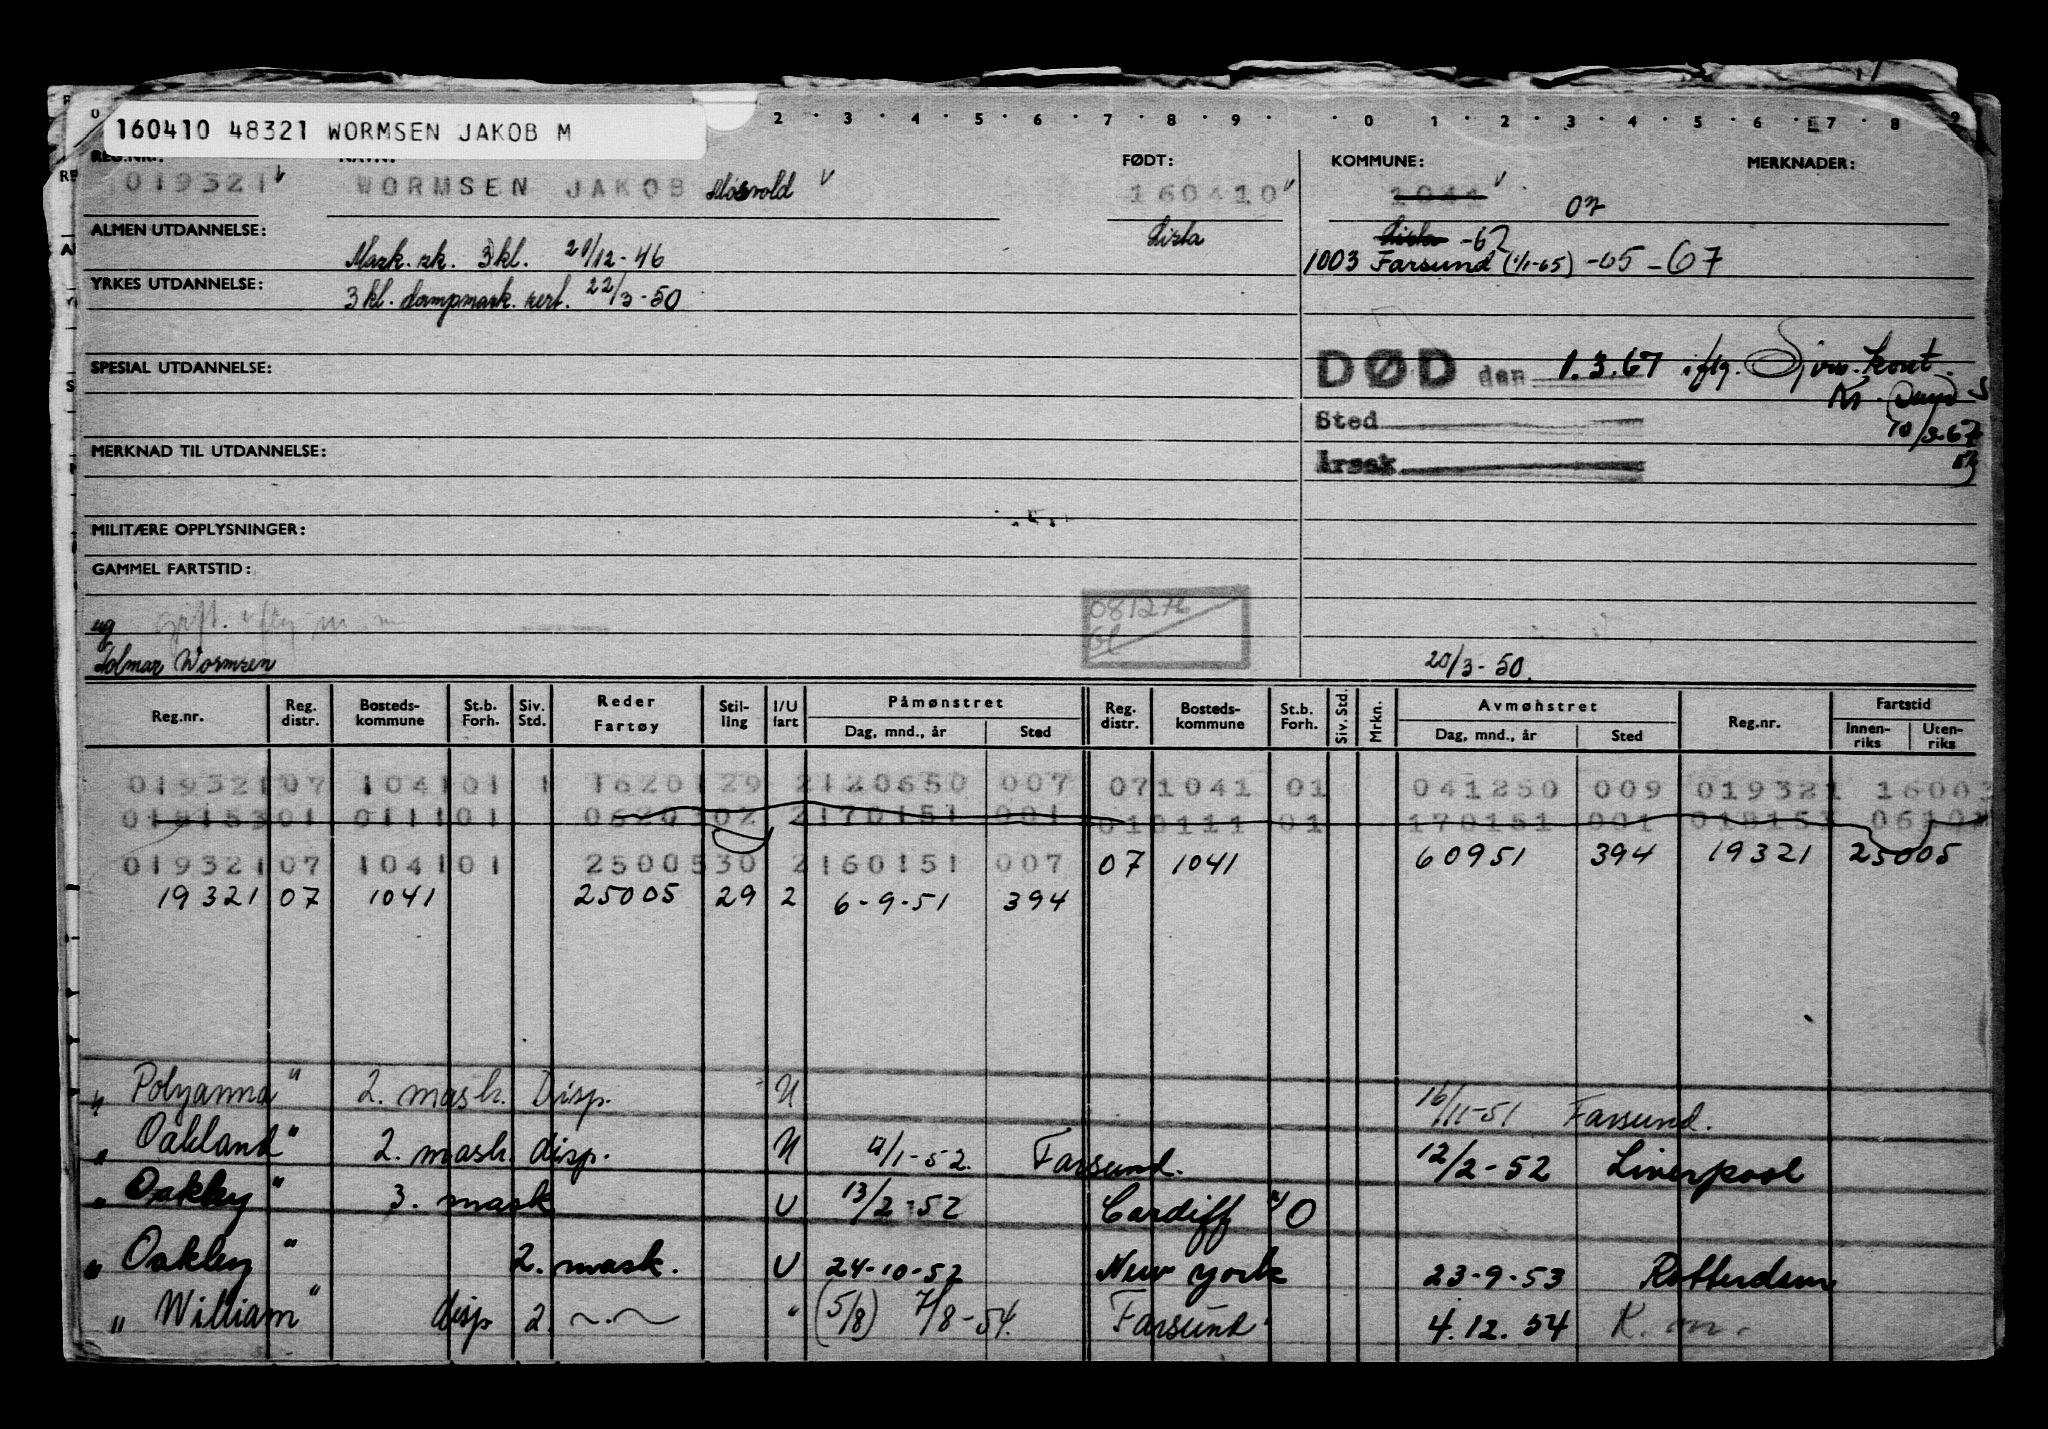 160410 48321 WORMSEN JAKOB M
2 · 3 · 4 · 5 · 6 · 7 · 8 · 9 · · 0 · 1 · 2 · 3 · 4 · 5 · 6 · 7 · 8 · 9
REG.NR.: NAVN: FØDT: KOMMUNE: MERKNADER:
019321 WORMSEN JAKOB Mosvold 160410 1044 07
ALMEN UTDANNELSE: Lista Lista -62
Mask. sk. 3 kl. 20/12-46 1003 Farsund (1/1-65) -65-67
YRKES UTDANNELSE:
3 kl. dampmask. sert. 22/3-50
SPESIAL UTDANNELSE: DØD den 1.3.67 iflg. Sjøm. kont.
Kr. Sand S
Sted 10/3.67
MERKNAD TIL UTDANNELSE: Årsak
MILITÆRE OPPLYSNINGER:
GAMMEL FARTSTID:
081276
og gift. iflg
Tolmar Wormsen 20/3-50.
Reg.nr. Reg. distr. Bosteds-kommune St.b. Forh. Siv. Std. Reder Fartøy Stil-ling I/U fart Påmønstret Dag, mnd., år Sted Reg. distr. Bosteds-kommune St.b. Forh. Siv. Std. Mrkn. Avmønstret Dag, mnd., år Sted Reg.nr. Fartstid Innen-riks Uten-riks
019321 07 1041 01 1 1620 129 2 120650 007 07 1041 01 041250 009 019321 16003
018153 01 0111 01 0620 302 2 170151 001 01 0111 01 170151 001 018153 0610
019321 07 1041 01 25005 30 2 160151 007 07 1041 60951 394 19321 25005
19321 07 1041 25005 29 2 6-9-51 394
" Polyanna " 2. mask. Disp. U 16/11-51 Farsund.
" Oakland " 2. mask. disp. U 4/1-52. Farsund. 12/2-52 Liverpool
" Oakley " 3. mask U 13/2-52 Cardiff "/O
" Oakley " 2. mask. U 24-10-52 New York 23-9-53 Rotterdam
" William " disp 2. ~.~ " (5/8) 7/8-54. Farsund 4.12.54 K. m.